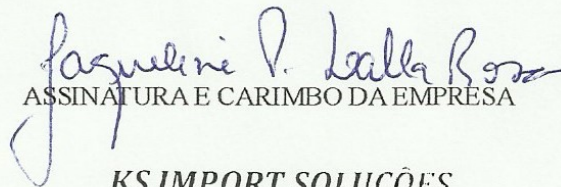 Jaqueline P. Dalla Rosa
ASSINATURA E CARIMBO DA EMPRESA
KS IMPORT SOLUÇÕES